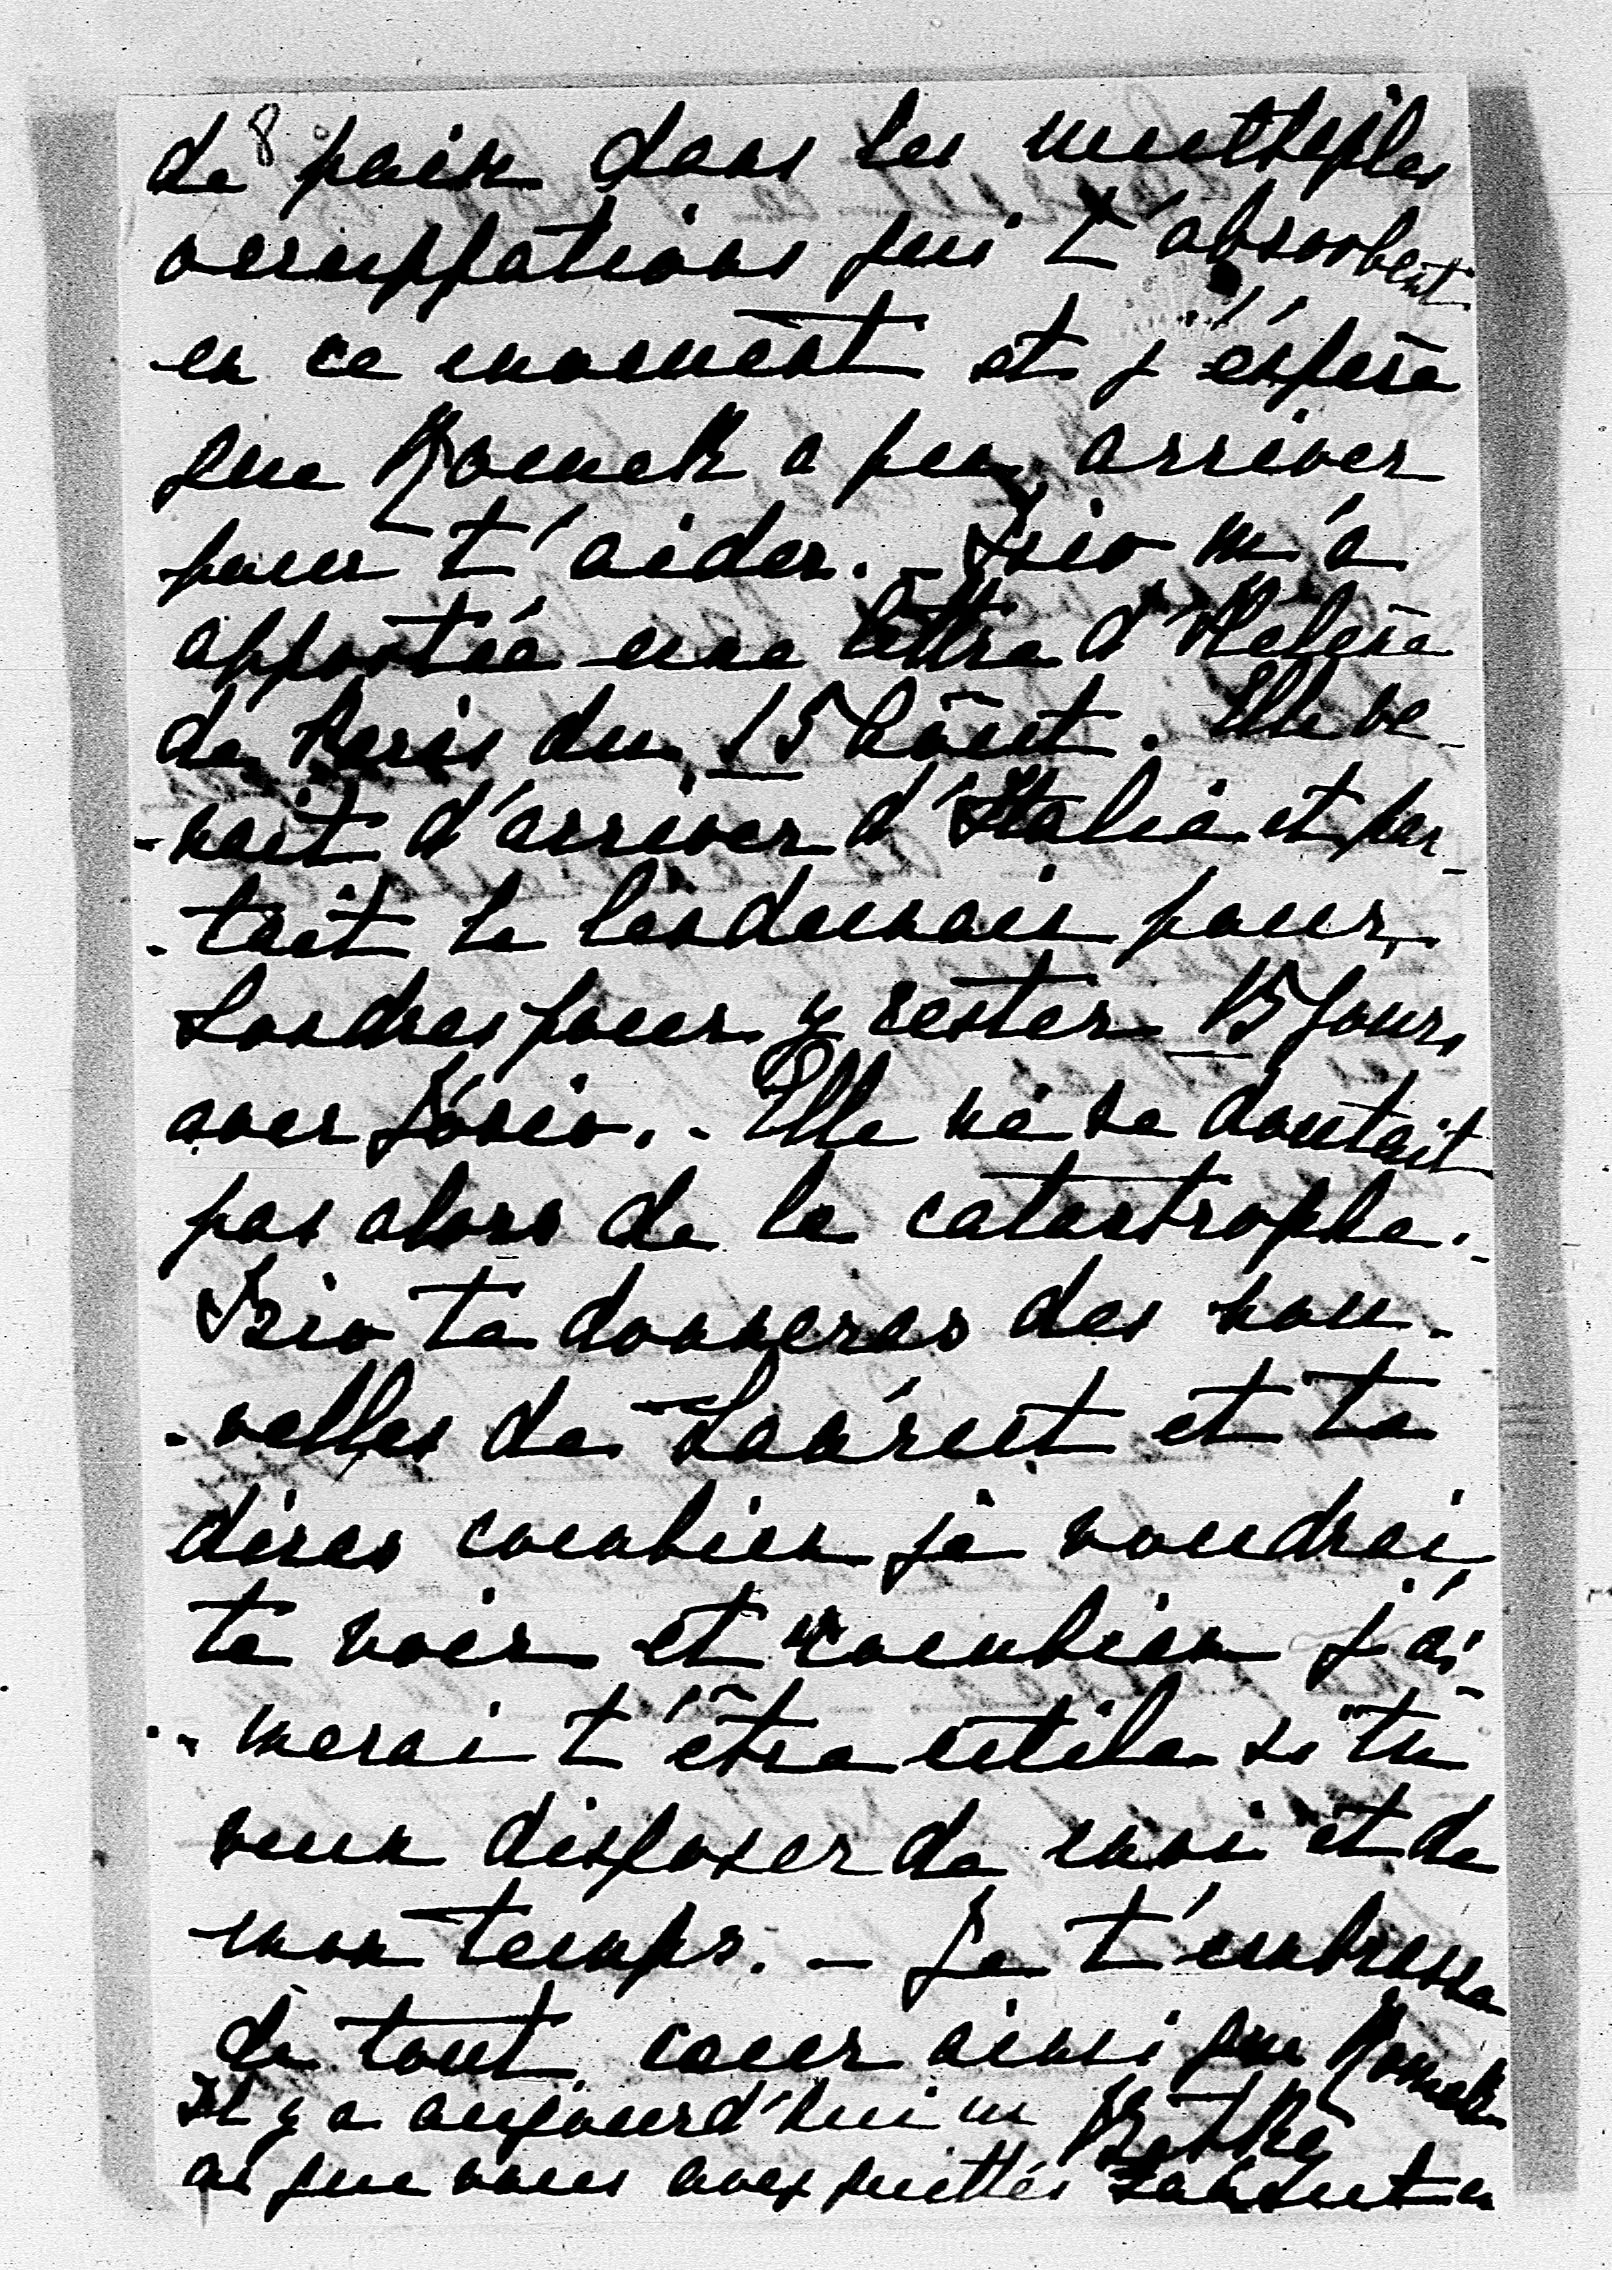 8
de paix dans les multiples
occuppations qui t'absorbent
en ce moment et j'éspère
que Romek a peu arriver
pour t'aider. - Izio m'a
apportée une lettre d'Hélène
de Paris du 15 Aôut. Elle ve-
-nait d'arriver d'Italie et par-
-tait le lendemain pour
Londres pour y rester 15 jours
avec Józio. - Elle ne se doutait
pas alors de la catastrophe. -
Izio te donneras des nou-
-velles de Łańcut et te
diras combien je voudrai
te voir et combien j'ai-
-merai t'être utile si tu
veux disposer de moi et de
mon temps. - Je t'embrasse
de tout coeur ainsi que Romek
Il y a aujourd'hui un
an que vous avez quittés Łańcut